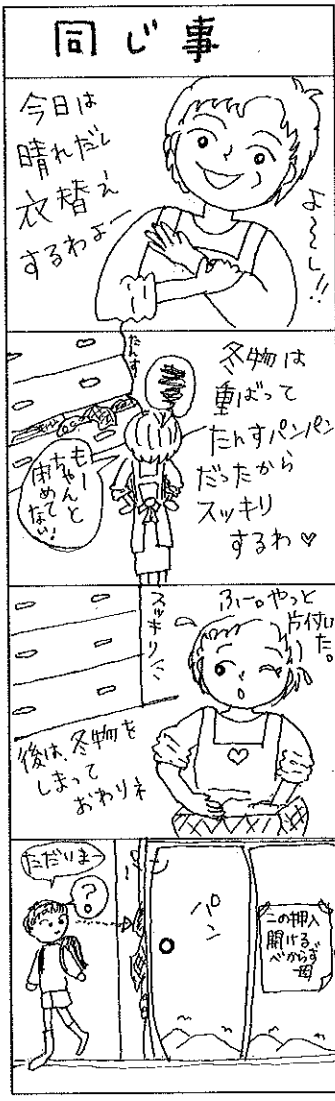 同じ事
よ〜〜し!!
今日は
晴れだし
衣替え
するわよー
冬物は
重ばって
たんすパンパン
だったから
スッキリ
するわ♡
たんす
もー
ちゃんと
閉めて
ない!
ふー。やっと
片付いた。
スッキリ
後は、冬物を
しまって
おわりネ
ただいまー
?
パン
この押入
開ける
べからず
母